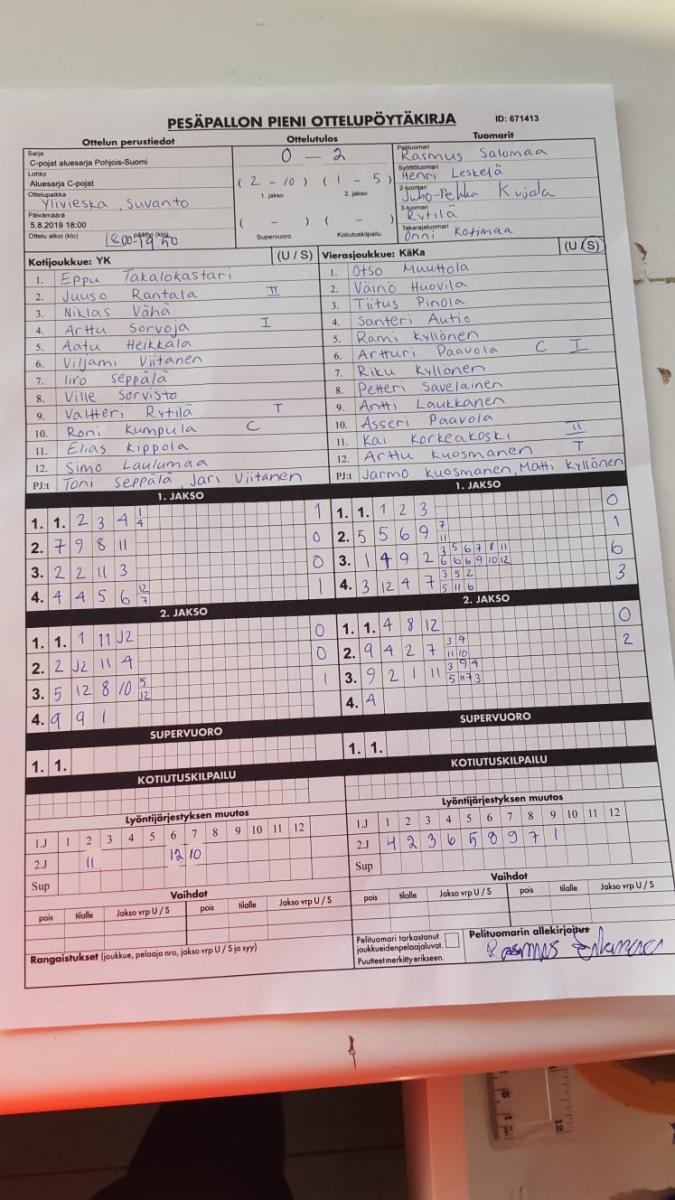 PESÄPALLON PIENI OTTELUPÖYTÄKIRJA ID: 671413
Ottelun perustiedot Ottelutulos Tuomarit
Sarja
C-pojat aluesarja Pohjois-Suomi
Lohko
Aluesarja C-pojat
Ottelupaikka
Ylivieska, Suvanto
Päivämäärä
5.8.2019 18:00
Ottelu alkoi (klo) päättyi (klo)
18.00-19.50
0 - 2
(2 - 10) (1 - 5)
1. jakso 2. jakso
( - ) ( - )
Supervuoro Kotiutuskilpailu
Pelituomari
Rasmus Salomaa
Syöttötuomari
Henri Leskelä
2-tuomari
Juho-Pekka Kujala
3-tuomari
Rytilä
Takarajatuomari
Onni Kotimaa
Kotijoukkue: YK (U / S)
1. Eppu Takalokastari
2. Juuso Rantala II
3. Niklas Vähä
4. Arttu Sorvoja I
5. Aatu Heikkala
6. Viljami Viitanen
7. Iiro Seppälä
8. Ville Sorvisto
9. Valtteri Rytilä T
10. Roni Kumpula C
11. Elias Kippola
12. Simo Laulumaa
PJ:t Toni Seppälä, Jari Viitanen
Vierasjoukkue: KäKa (U / S)
1. Otso Muuttola
2. Väinö Huovila
3. Tiitus Pinola
4. Santeri Autio
5. Rami Kyllönen
6. Artturi Paavola C I
7. Riku Kyllönen
8. Petteri Savelainen
9. Antti Laukkanen
10. Asseri Paavola
11. Kai Korkeakoski II
12. Arttu Kuosmanen T
PJ:t Jarmo Kuosmanen, Matti Kyllönen
1. JAKSO
1. 1. 2 3 4 1 4 1
2. 7 9 8 11 0
3. 2 2 11 3 0
4. 4 4 5 6 12 7 1
1. JAKSO
1. 1. 1 2 3 0
2. 5 5 6 9 7 11 1
3. 1 4 9 2 3 5 6 7 8 11 6 6 6 9 10 12 6
4. 3 12 4 7 3 5 2 5 11 6 3
2. JAKSO
1. 1. 1 11 12 0
2. 2 12 11 4 0
3. 5 12 8 10 5 12 1
4. 9 9 1
2. JAKSO
1. 1. 4 8 12 0
2. 9 4 2 7 3 9 11 10 2
3. 9 2 1 11 3 9 4
4. 4
SUPERVUORO
1. 1.
SUPERVUORO
1. 1.
KOTIUTUSKILPAILU
KOTIUTUSKILPAILU
Lyöntijärjestyksen muutos
1.J 1 2 3 4 5 6 7 8 9 10 11 12
2.J 11 12 10
Sup
Lyöntijärjestyksen muutos
1.J 1 2 3 4 5 6 7 8 9 10 11 12
2.J 4 2 3 6 5 8 9 7 1
Sup
Vaihdot
pois tilalle Jakso vrp U / S pois tilalle Jakso vrp U / S
Vaihdot
pois tilalle Jakso vrp U / S pois tilalle Jakso vrp U / S
Rangaistukset (joukkue, pelaaja nro, jakso vrp U / S ja syy)
Pelituomari tarkastanut
joukkueiden pelaajaluvat.
Puutteet merkitty erikseen.
Pelituomarin allekirjoitus
Rasmus